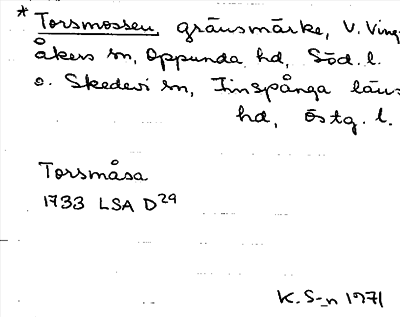 * Torsmossen, gränsmärke, V. Ving-
åkers sn, Oppunda hd, Söd. l.
o. Skedevi sn, Finspånga läns
hd, Östg. l.
Torsmåsa
1733 LSA D29
K. S-n 1971